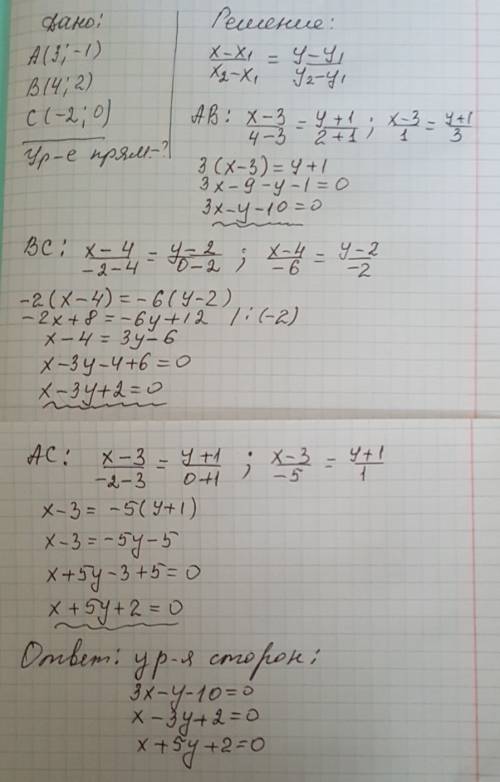 Дано:
A(3;-1)
B(4;2)
C(-2;0)
Ур-е прям-?
Решение:
x-x₁/x₂-x₁ = y-y₁/y₂-y₁
AB: x-3/4-3 = y+1/2+1; x-3/1 = y+1/3
3(x-3)=y+1
3x-9-y-1=0
3x-y-10=0
BC: x-4/-2-4 = y-2/0-2; x-4/-6 = y-2/-2
-2(x-4)=-6(y-2)
-2x+8=-6y+12 /:(-2)
x-4=3y-6
x-3y-4+6=0
x-3y+2=0
AC: x-3/-2-3 = y+1/0+1; x-3/-5 = y+1/1
x-3=-5(y+1)
x-3=-5y-5
x+5y-3+5=0
x+5y+2=0
Ответ: ур-я сторон:
3x-y-10=0
x-3y+2=0
x+5y+2=0